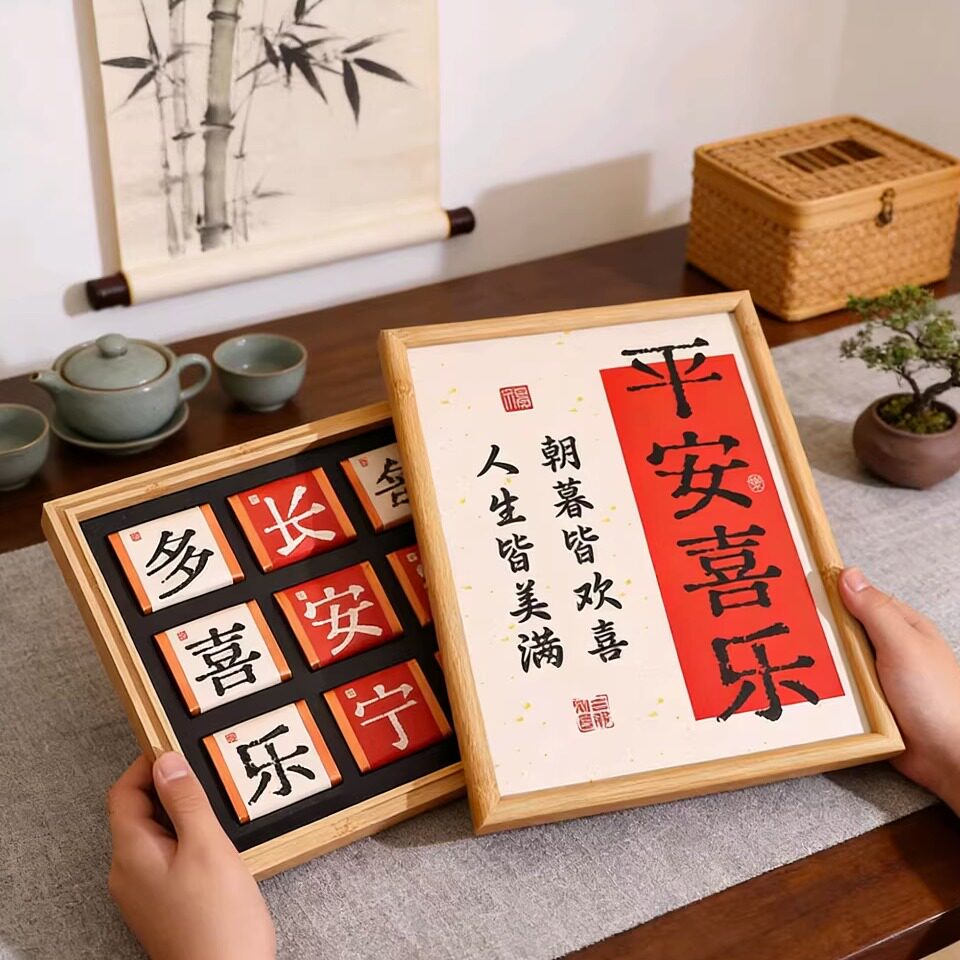 平安喜乐
朝暮皆欢喜
人生皆美满
多喜乐
长安宁